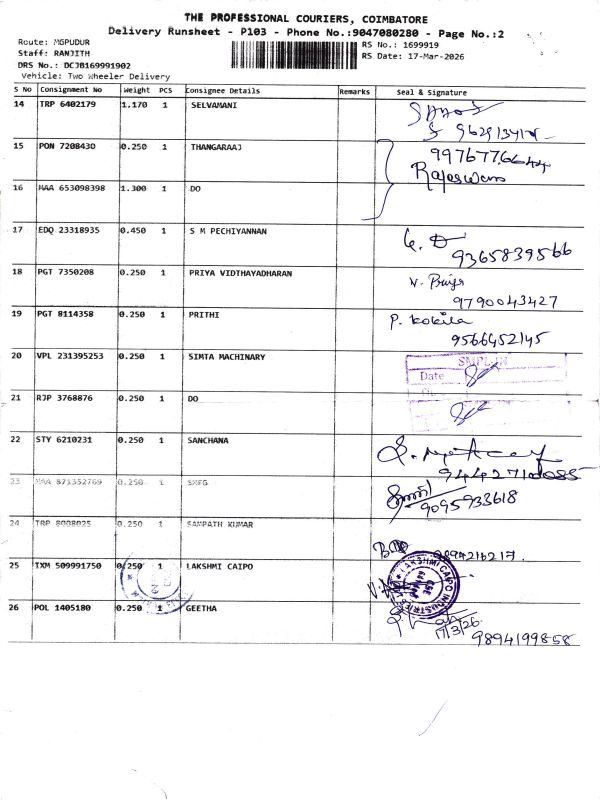 THE PROFESSIONAL COURIERS, COIMBATORE
Delivery Runsheet - P103 - Phone No.:9047080280 - Page No.:2
Route: MGPUDUR
Staff: RANJITH
DRS No.: DCJB169991902
Vehicle: Two Wheeler Delivery
RS No.: 1699919
RS Date: 17-Mar-2026
S No Consignment No Weight PCS Consignee Details Remarks Seal & Signature
14 TRP 6402179 1.170 1 SELVAMANI
15 PON 7208430 0.250 1 THANGARAAJ
Rajeswari
16 MAA 653098398 1.300 1 DO
17 EDQ 23318935 0.450 1 S M PECHIYANNAN
9365839566
18 PGT 7350208 0.250 1 PRIYA VIDTHAYADHARAN
V. Priya
9790043427
19 PGT 8114358 0.250 1 PRITHI
P. Kokila
9566452145
20 VPL 231395253 0.250 1 SIMTA MACHINARY
Date
21 RJP 3768876 0.250 1 DO
22 STY 6210231 0.250 1 SANCHANA
23 MAA 871352769 0.250 1 SMFG
9095933618
24 TRP 8008025 0.250 1 SAMPATH KUMAR
25 TXM 509991750 0.250 1 LAKSHMI CAIPO
LAKSHMI CAIPO INDUSTRIES
26 POL 1405180 0.250 1 GEETHA
17/3/26
9894199858